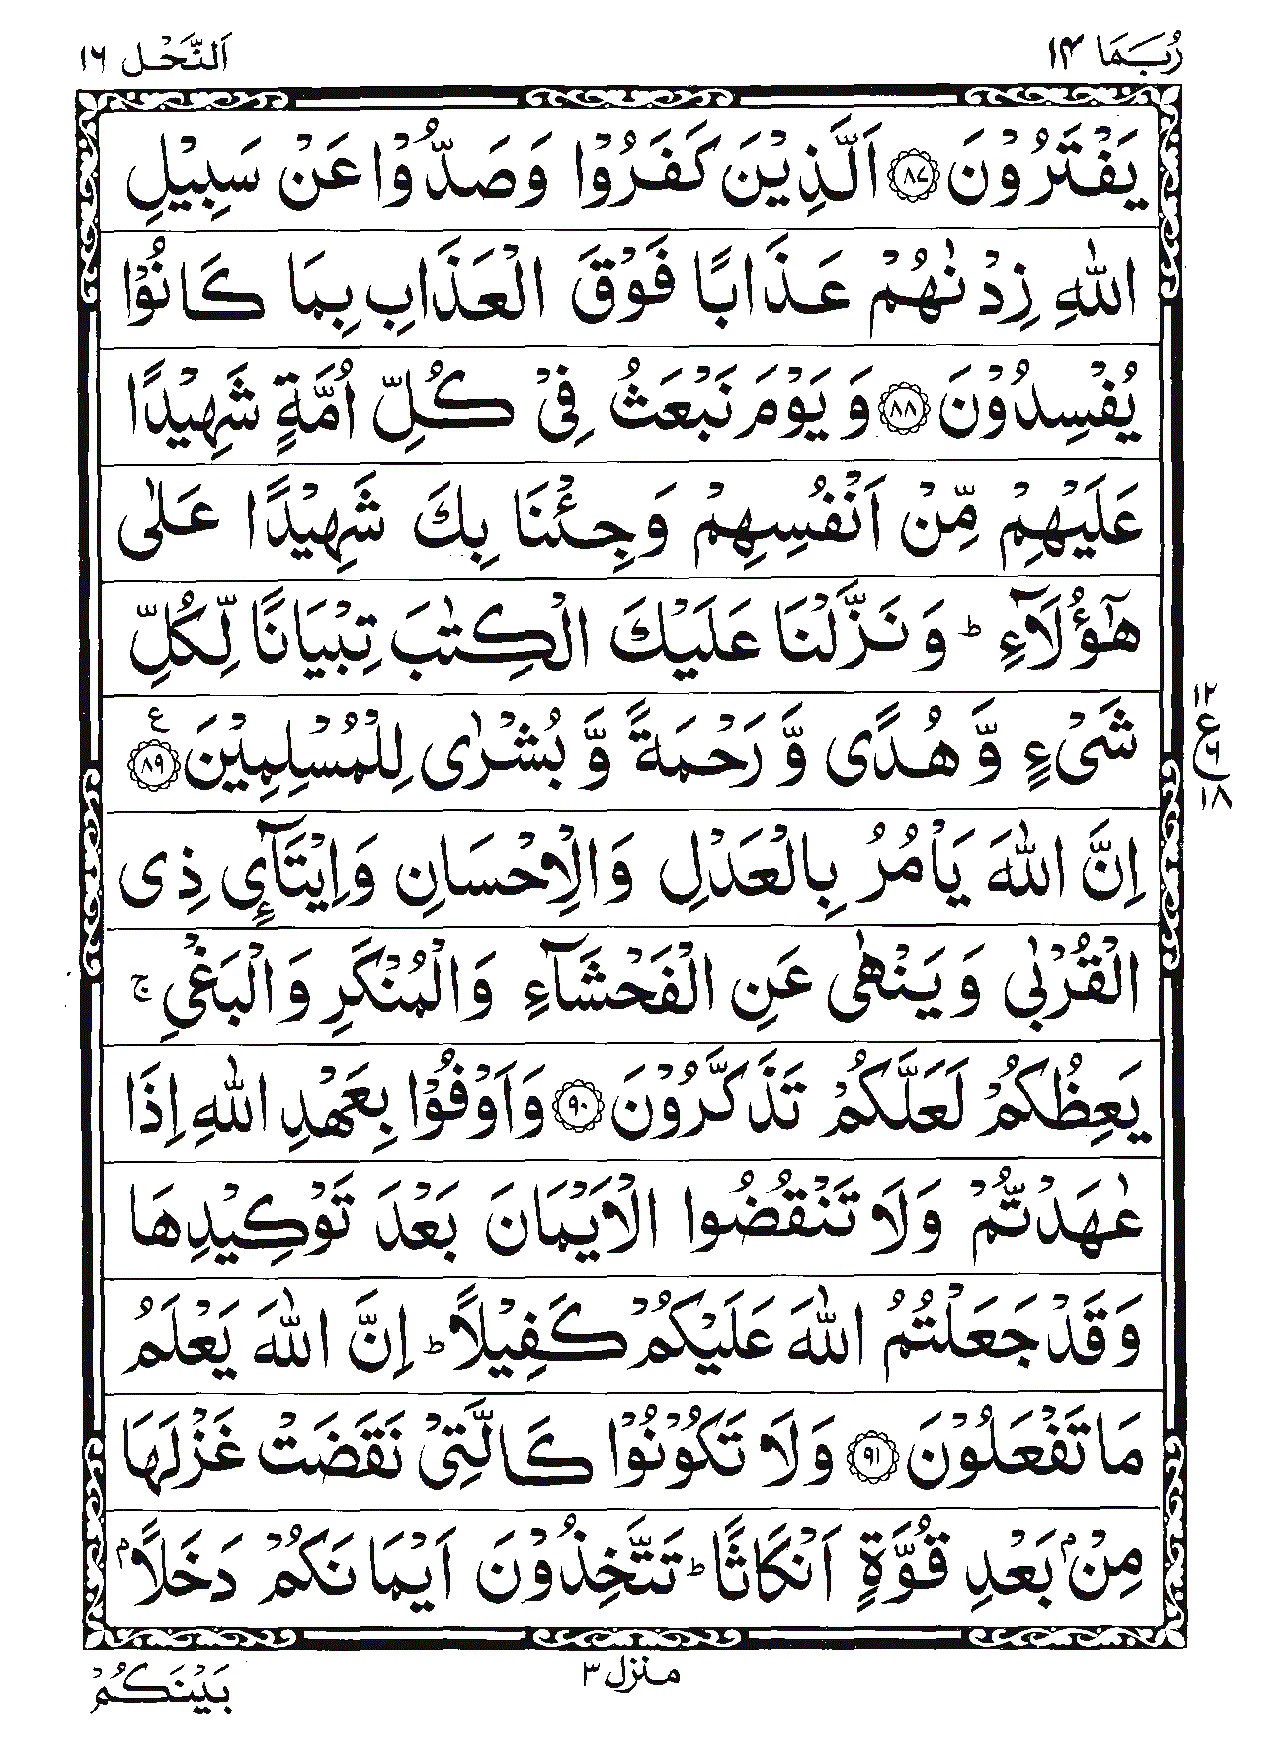 رُبَمَا ١٤
اَلنَّحْل ١٦
يَفْتَرُوْنَ ۝٨٧ اَلَّذِيْنَ كَفَرُوْا وَصَدُّوْا عَنْ سَبِيْلِ
اللّٰهِ زِدْنٰهُمْ عَذَابًا فَوْقَ الْعَذَابِ بِمَا كَانُوْا
يُفْسِدُوْنَ ۝٨٨ وَ يَوْمَ نَبْعَثُ فِيْ كُلِّ اُمَّةٍ شَهِيْدًا
عَلَيْهِمْ مِّنْ اَنْفُسِهِمْ وَجِئْنَا بِكَ شَهِيْدًا عَلٰى
هٰٓؤُلَآءِ ؕ وَ نَزَّلْنَا عَلَيْكَ الْكِتٰبَ تِبْيَانًا لِّكُلِّ
شَيْءٍ وَّ هُدًى وَّ رَحْمَةً وَّ بُشْرٰى لِلْمُسْلِمِيْنَ ۝٨٩ ع
١٢
ع
٦
١٨
اِنَّ اللّٰهَ يَاْمُرُ بِالْعَدْلِ وَالْاِحْسَانِ وَاِيْتَآئِ ذِى
الْقُرْبٰى وَ يَنْهٰى عَنِ الْفَحْشَآءِ وَالْمُنْكَرِ وَالْبَغْيِ ۚ
يَعِظُكُمْ لَعَلَّكُمْ تَذَكَّرُوْنَ ۝٩٠ وَاَوْفُوْا بِعَهْدِ اللّٰهِ اِذَا
عٰهَدْتُّمْ وَلَا تَنْقُضُوا الْاَيْمَانَ بَعْدَ تَوْكِيْدِهَا
وَقَدْ جَعَلْتُمُ اللّٰهَ عَلَيْكُمْ كَفِيْلًا ؕ اِنَّ اللّٰهَ يَعْلَمُ
مَا تَفْعَلُوْنَ ۝٩١ وَلَا تَكُوْنُوْا كَالَّتِيْ نَقَضَتْ غَزْلَهَا
مِنْۢ بَعْدِ قُوَّةٍ اَنْكَاثًا ؕ تَتَّخِذُوْنَ اَيْمَانَكُمْ دَخَلًاۢ
منزل ٣
بَيْنَكُمْ